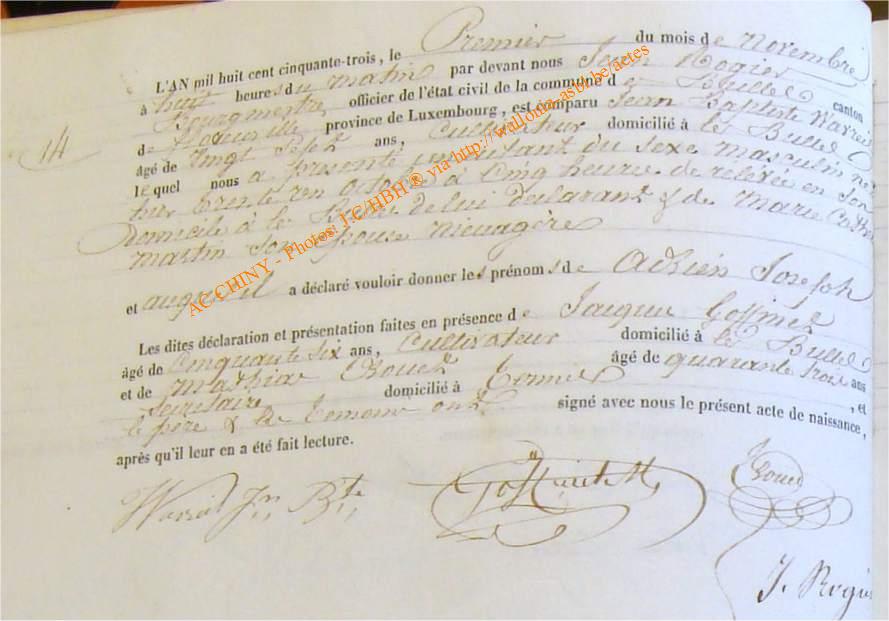 L'AN mil huit cent cinquante-trois, le Premier du mois de Novembre
à huit heures du matin par devant nous Jean Rogier
Bourgmestre officier de l'état civil de la commune de canton
de province de Luxembourg, est comparu Jean Baptiste Warreit
14
âgé de vingt sept ans, Cultivateur domicilié à
lequel nous a présenté un enfant du sexe masculin né
hier trente en octobre à Cinq heures de relevée en son
Domicile à de lui déclarant & de marie
martin son Epouse menagère
et auquel il a déclaré vouloir donner les prénoms de Adrien Joseph
Les dites déclaration et présentation faites en présence de Jacque Goffinet
âgé de Cinquante six ans, Cultivateur domicilié à
et de Mathias Rouer âgé de quarante trois ans
secrétaire domicilié à Termes , et
le père & les temoins ont signé avec nous le présent acte de naissance,
après qu'il leur en a été fait lecture.
Warreit Jn Bte
J. Rogier
ACCHINY - Photos: J.C/HBH ® via http://wallonia-asbl.be/actes